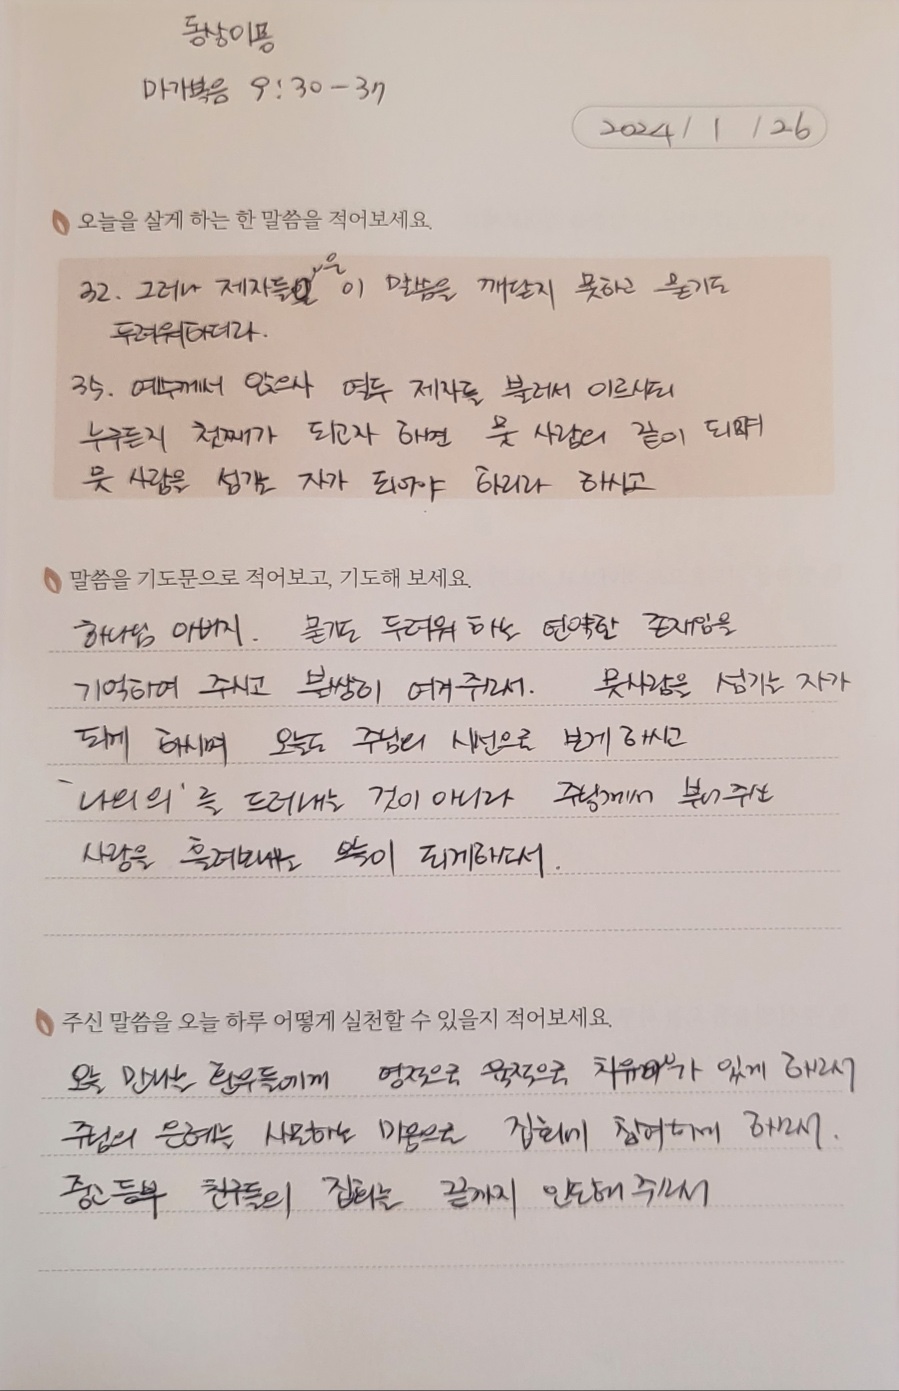 동상이몽
마가복음 9:30-37
2024/1/26
오늘을 살게 하는 한 말씀을 적어보세요.
32. 그러나 제자들은 이 말씀을 깨닫지 못하고 묻기도
두려워하더라.
35. 예수께서 앉으사 열두 제자를 불러서 이르시되
누구든지 첫째가 되고자 하면 뭇 사람의 끝이 되며
뭇 사람을 섬기는 자가 되어야 하리라 하시고
말씀을 기도문으로 적어보고, 기도해 보세요.
하나님 아버지. 묻기도 두려워 하는 연약한 존재임을
기억하여 주시고 불쌍히 여겨주소서. 뭇사람을 섬기는 자가
되게 하시며 오늘도 주님의 시선으로 보게 하시고
'나의 의'를 드러내는 것이 아니라 주님께서 부어주신
사랑을 흘려보내는 이 되게하소서.
주신 말씀을 오늘 하루 어떻게 실천할 수 있을지 적어보세요.
오늘 만나는 환우들에게 영적으로 육적으로 가 있게 하소서
주님의 은혜를 사모하는 마음으로 집회에 참여하게 하소서.
중고등부 친구들의 집회를 끝까지 인도해 주소서